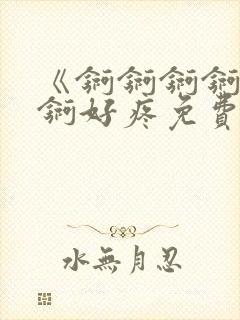 《锕锕锕锕
锕好疼免費
水無月忍